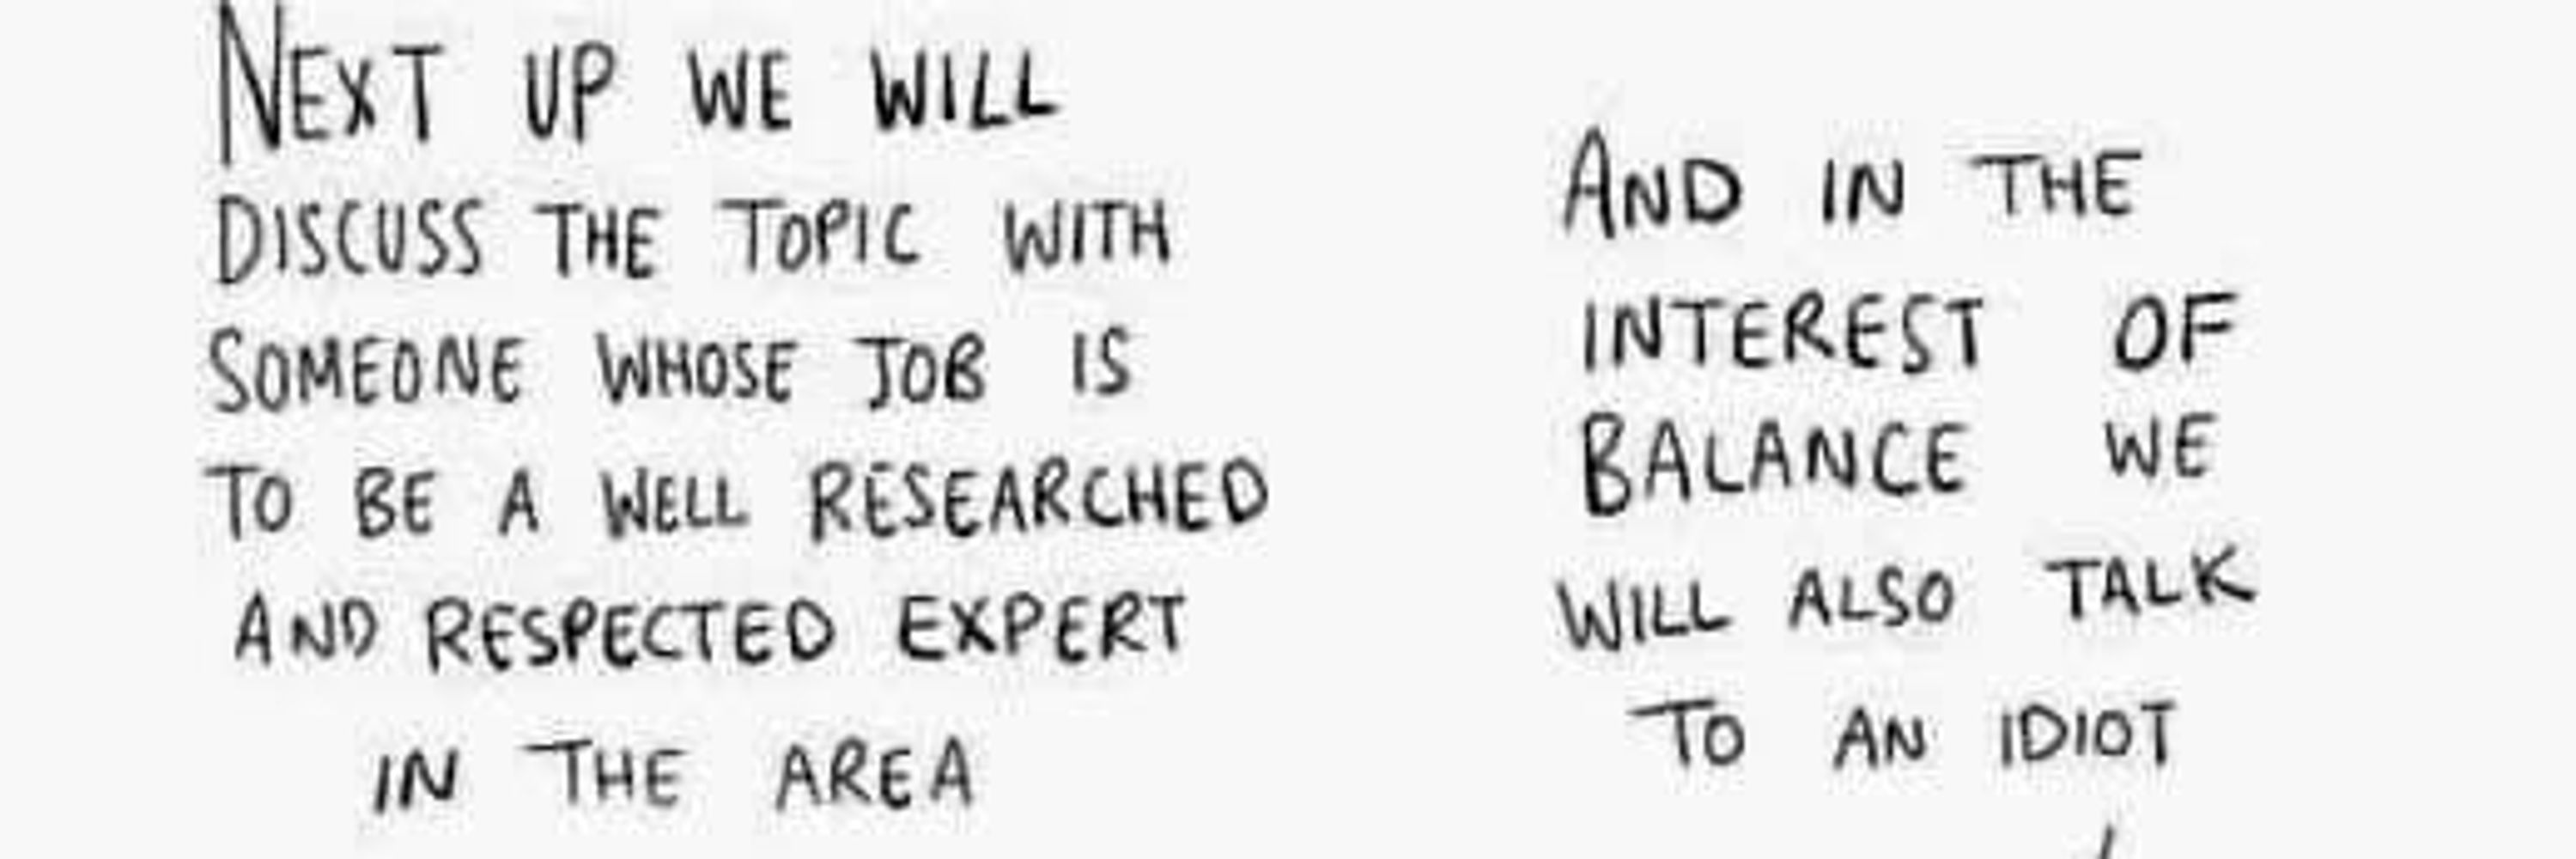 NEXT UP WE WILL
DISCUSS THE TOPIC WITH
SOMEONE WHOSE JOB IS
TO BE A WELL RESEARCHED
AND RESPECTED EXPERT
IN THE AREA
AND IN THE
INTEREST OF
BALANCE WE
WILL ALSO TALK
TO AN IDIOT